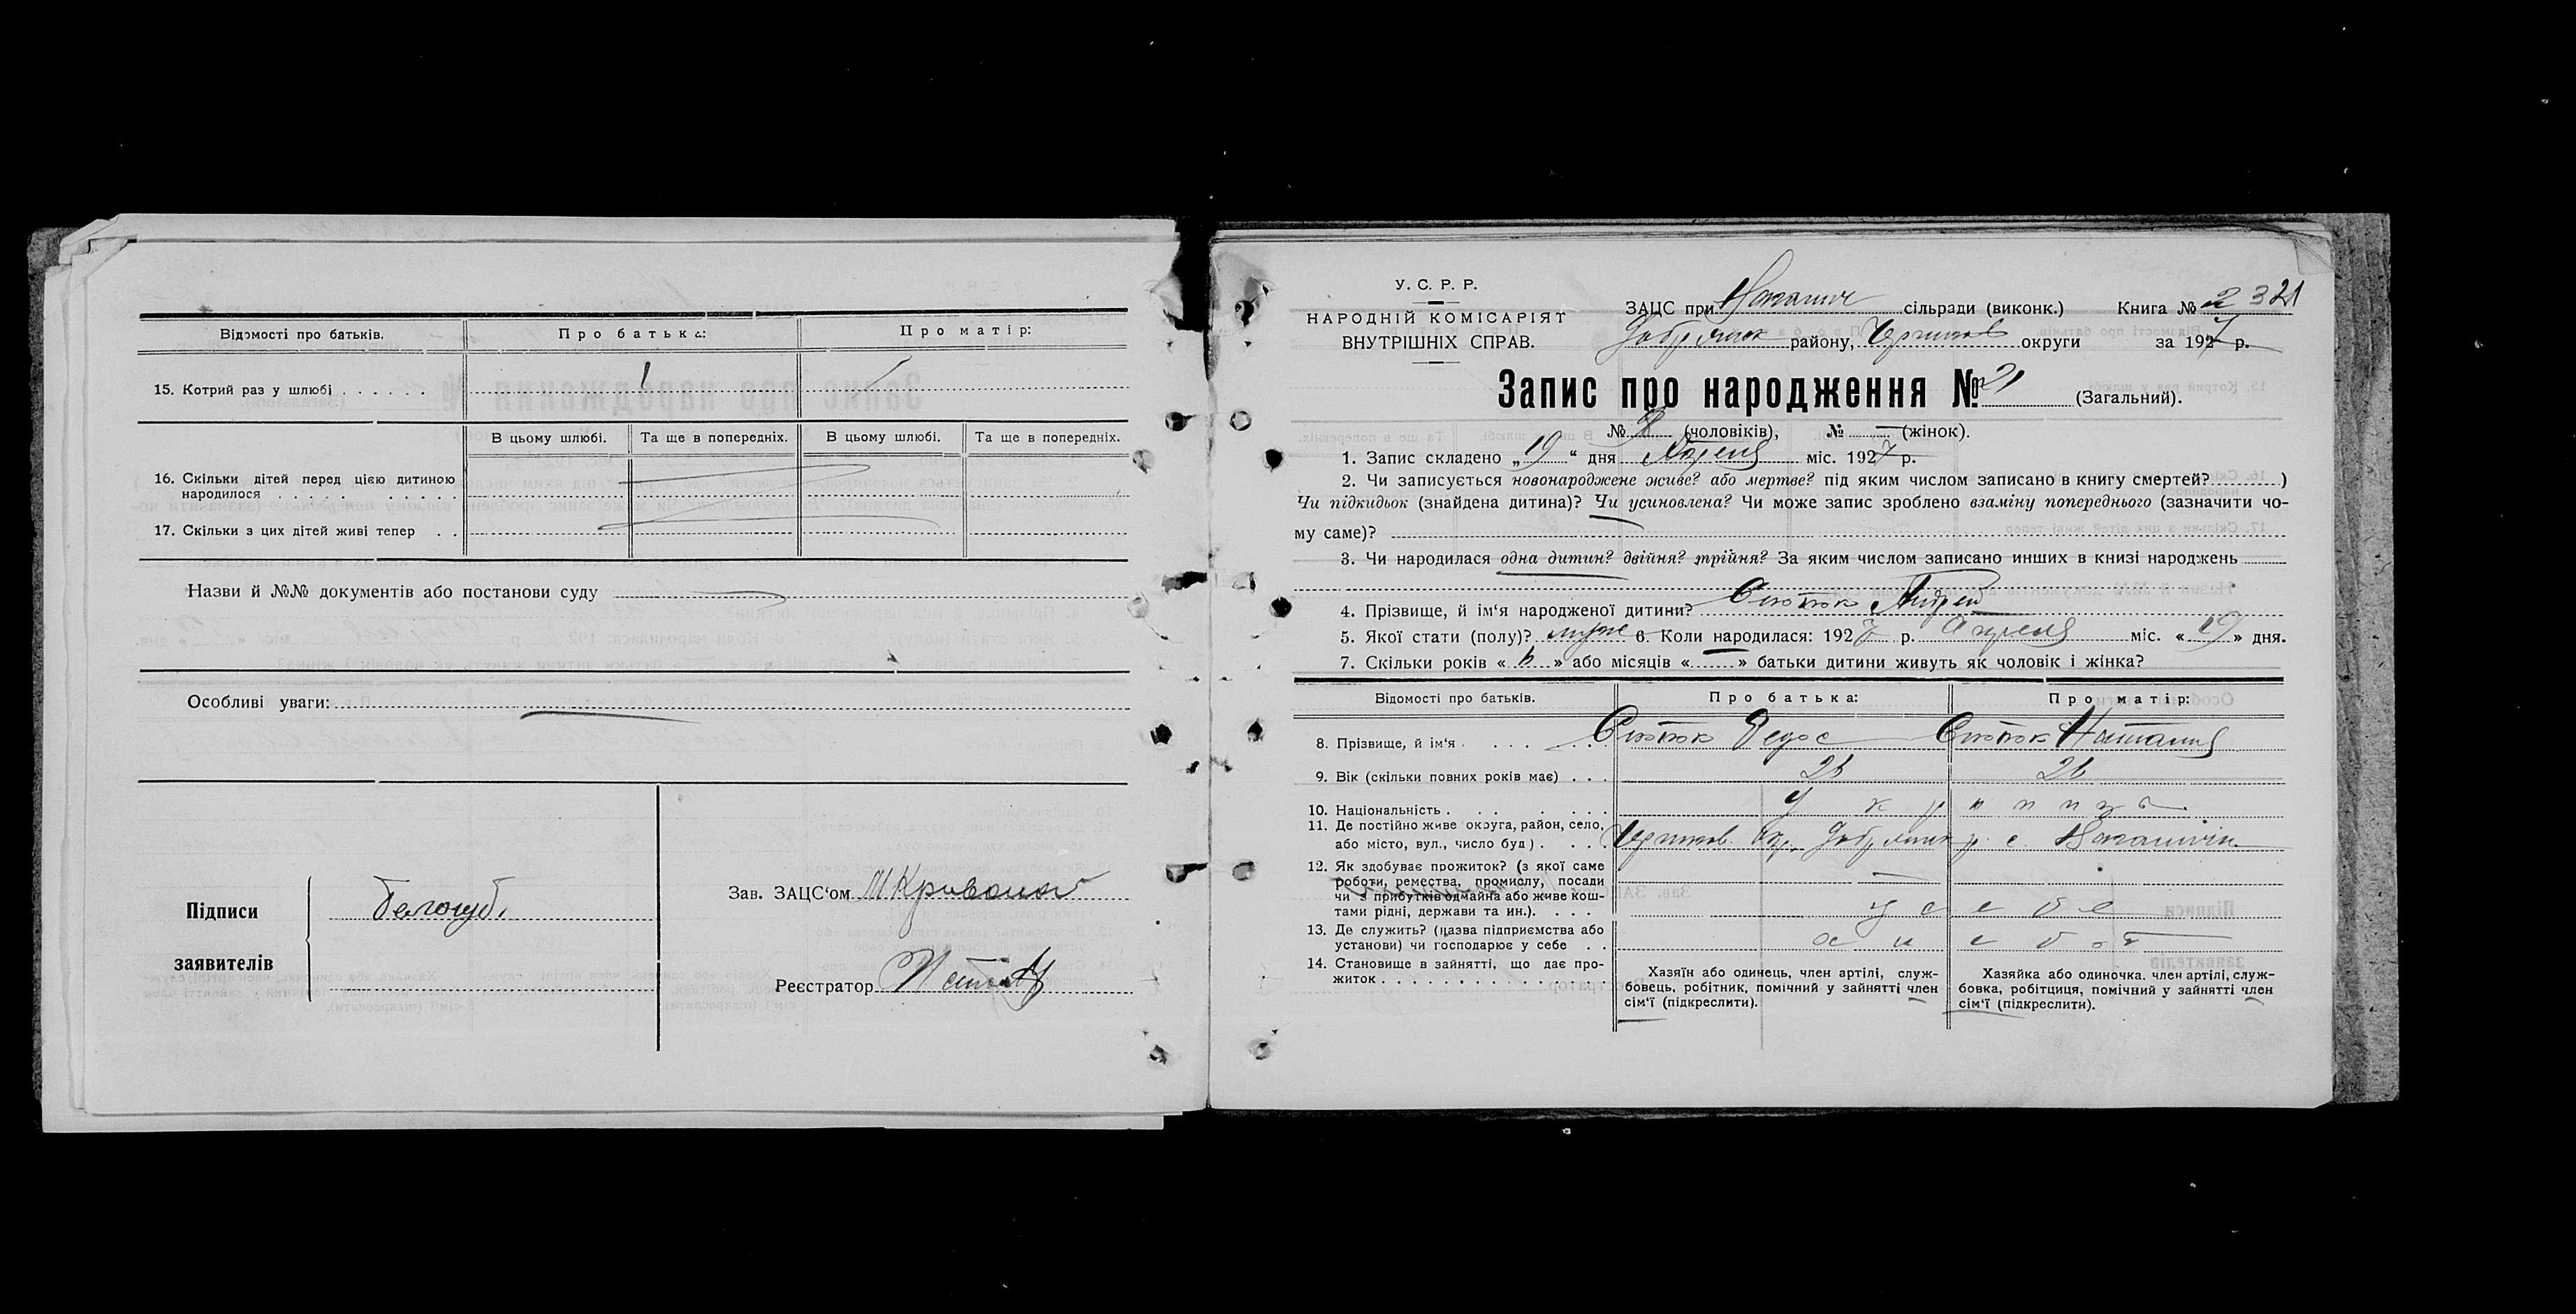 Відомості про батьків.
Про батька:
Про матір:
15. Котрий раз у шлюбі . . . . . .
1
В цьому шлюбі.
Та ще в попередніх.
В цьому шлюбі.
Та ще в попередніх.
16. Скільки дітей перед цією дитиною
народилося . . . . . . . . . .
17. Скільки з цих дітей живі тепер . .
Назви й №№ документів або постанови суду
Особливі уваги:
Підписи
заявителів
Зав. ЗАЦС‘ом
Реєстратор
У. С. Р. Р.
НАРОДНІЙ КОМІСАРІЯТ
ВНУТРІШНІХ СПРАВ.
ЗАЦС при сільради (виконк.) Книга № 2 321
району, округи за 1927 р.
Запис про народження № 21 (Загальний).
№ (чоловіків), № — (жінок).
1. Запис складено „19“ дня Апреля міс. 1927 р.
2. Чи записується новонароджене живе? або мертве? під яким числом записано в книгу смертей? )
Чи підкидьок (знайдена дитина)? Чи усиновлена? Чи може запис зроблено взаміну попереднього (зазначити чо-
му саме)?
3. Чи народилася одна дитин? двійня? трійня? За яким числом записано инших в книзі народжень
4. Прізвище, й ім‘я народженої дитини? Андрей
5. Якої стати (полу)? муж 6. Коли народилася: 1927 р. Апреля міс. «19» дня.
7. Скільки років «6» або місяців « » батьки дитини живуть як чоловік і жінка?
Відомості про батьків.
Про батька:
Про матір:
8. Прізвище, й ім‘я . . . . . .
Федос
Наталия
9. Вік (скільки повних років має) . . .
26
26
10. Національність . . . . . . .
украинцы
11. Де постійно живе округа, район, село,
або місто, вул., число буд) . . . .
12. Як здобуває прожиток? (з якої саме
роботи, ремества, промислу, посади
чи з прибутків одмайна або живе кош-
тами рідні, держави та ин.). . . .
у себе
13. Де служить? (назва підприємства або
установи) чи господарює у себе . .
14. Становище в зайнятті, що дає про-
житок . . . . . . . . . . . . .
Хазяїн або одинець, член артілі, служ-
бовець, робітник, помічний у зайнятті член
сім‘ї (підкреслити).
Хазяйка або одиночка. член артілі, служ-
бовка, робітциця, помічний у зайнятті член
сім‘ї (підкреслити).